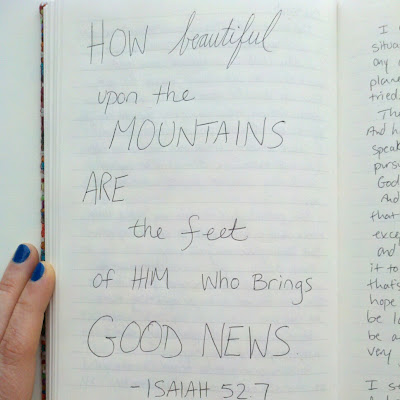 HOW beautiful
upon the
MOUNTAINS
ARE
the feet
of HIM who Brings
GOOD NEWS.
- ISAIAH 52.7
I
situa
any
plan
tried.
The
And h
speak
purs
God
And
that
exce
and
it to
thats
hope
be lo
be a
very
I s